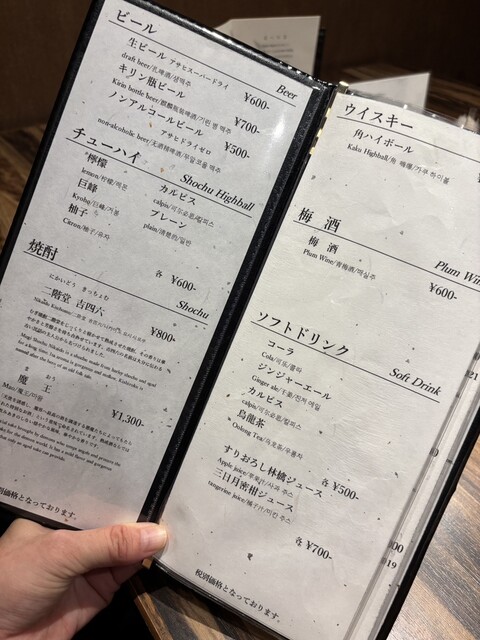 ビール
Beer
生ビール アサヒスーパードライ
draft beer/扎啤酒/생맥주
¥600-
キリン瓶ビール
Kirin bottle beer/麒麟瓶装啤酒/기린 병 맥주
¥700-
ノンアルコールビール
アサヒドライゼロ
non-alcoholic beer/无酒精啤酒/무알코올 맥주
¥500-
チューハイ
Shochu Highball
檸檬
lemon/柠檬/레몬
カルピス
calpis/可尔必思/칼피스
巨峰
Kyoho/巨峰/거봉
プレーン
plain/清楚的/일반
柚子
Citron/柚子/유자
各 ¥600-
焼酎
Shochu
にかいどう きっちょむ
二階堂 吉四六
¥800-
まおう
魔王
Mao/魔王/마왕
¥1,300-
別価格となっております。
ウイスキー
角ハイボール
Kaku Highball/角 嗨棒/가쿠 하이볼
梅酒
Plum Win
梅酒
Plum Wine/青梅酒/매실주
¥600-
ソフトドリンク
Soft Drink
コーラ
Cola/可乐/콜라
ジンジャーエール
Ginger ale/干姜/진저 에일
カルピス
calpis/可尔必思/칼피스
烏龍茶
Oolong Tea/乌龙茶/우롱차
各 ¥500-
すりおろし林檎ジュース
Apple juice/苹果汁/사과 주스
三日月密柑ジュース
tangerine juice/橘子汁/미칸 주스
各 ¥700-
税別価格となっております。